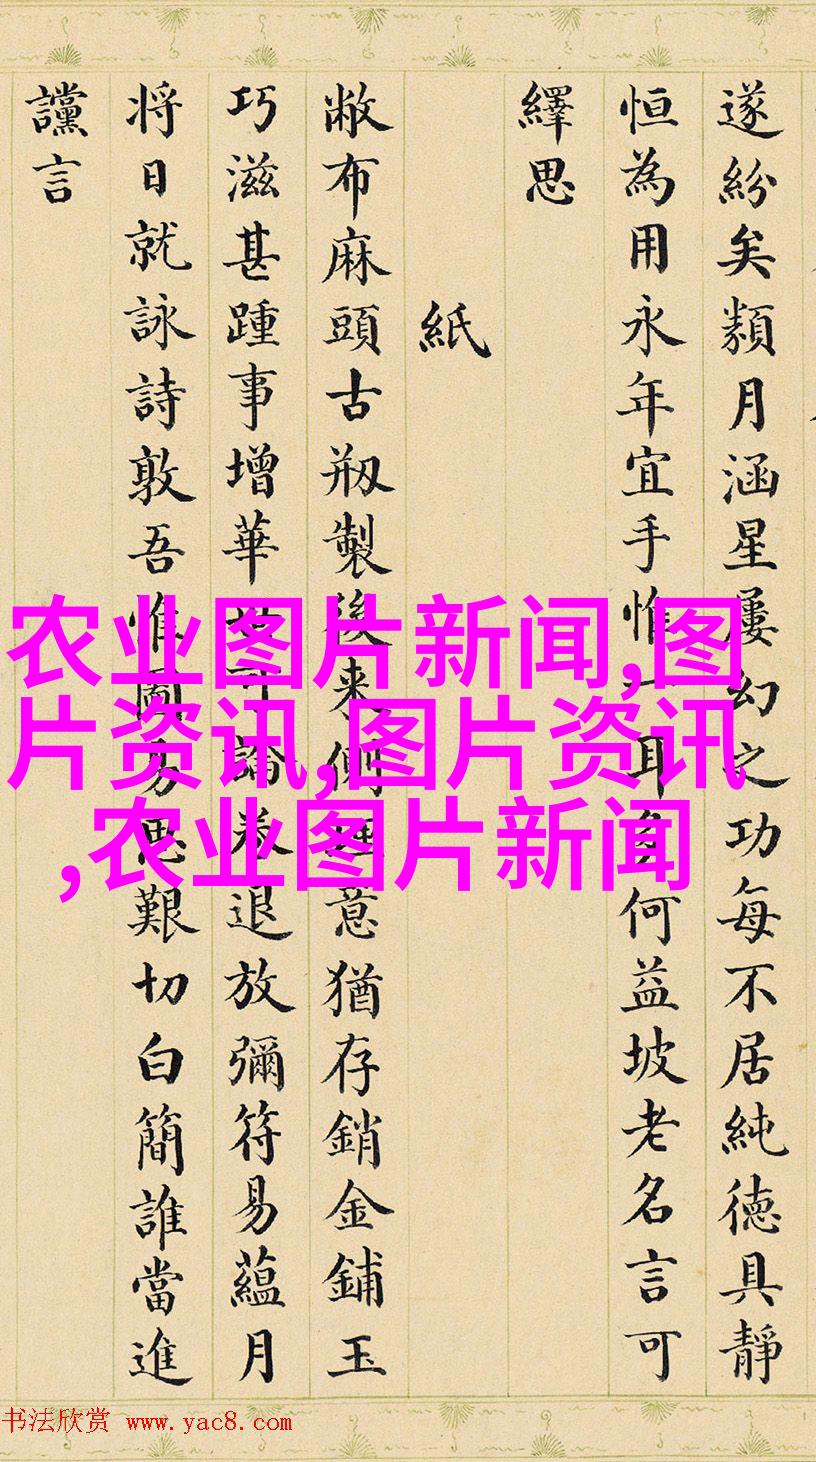 遂紛矣類月涵星屢幻之功每不居純德具靜
恒為用永年宜手惟一耳多何益坡老名言可
繹思
紙
敝布麻頭古刱製後来側理意猶存銷金鋪玉
巧滋甚踵事增華世可論卷退放彌符易蘊月
将日就詠詩敦吾惟圖易思艱切白簡誰當進
讜言
农业图片新闻,图
片资讯,图片资讯
,农业图片新闻
书法欣赏 www.yac8.com